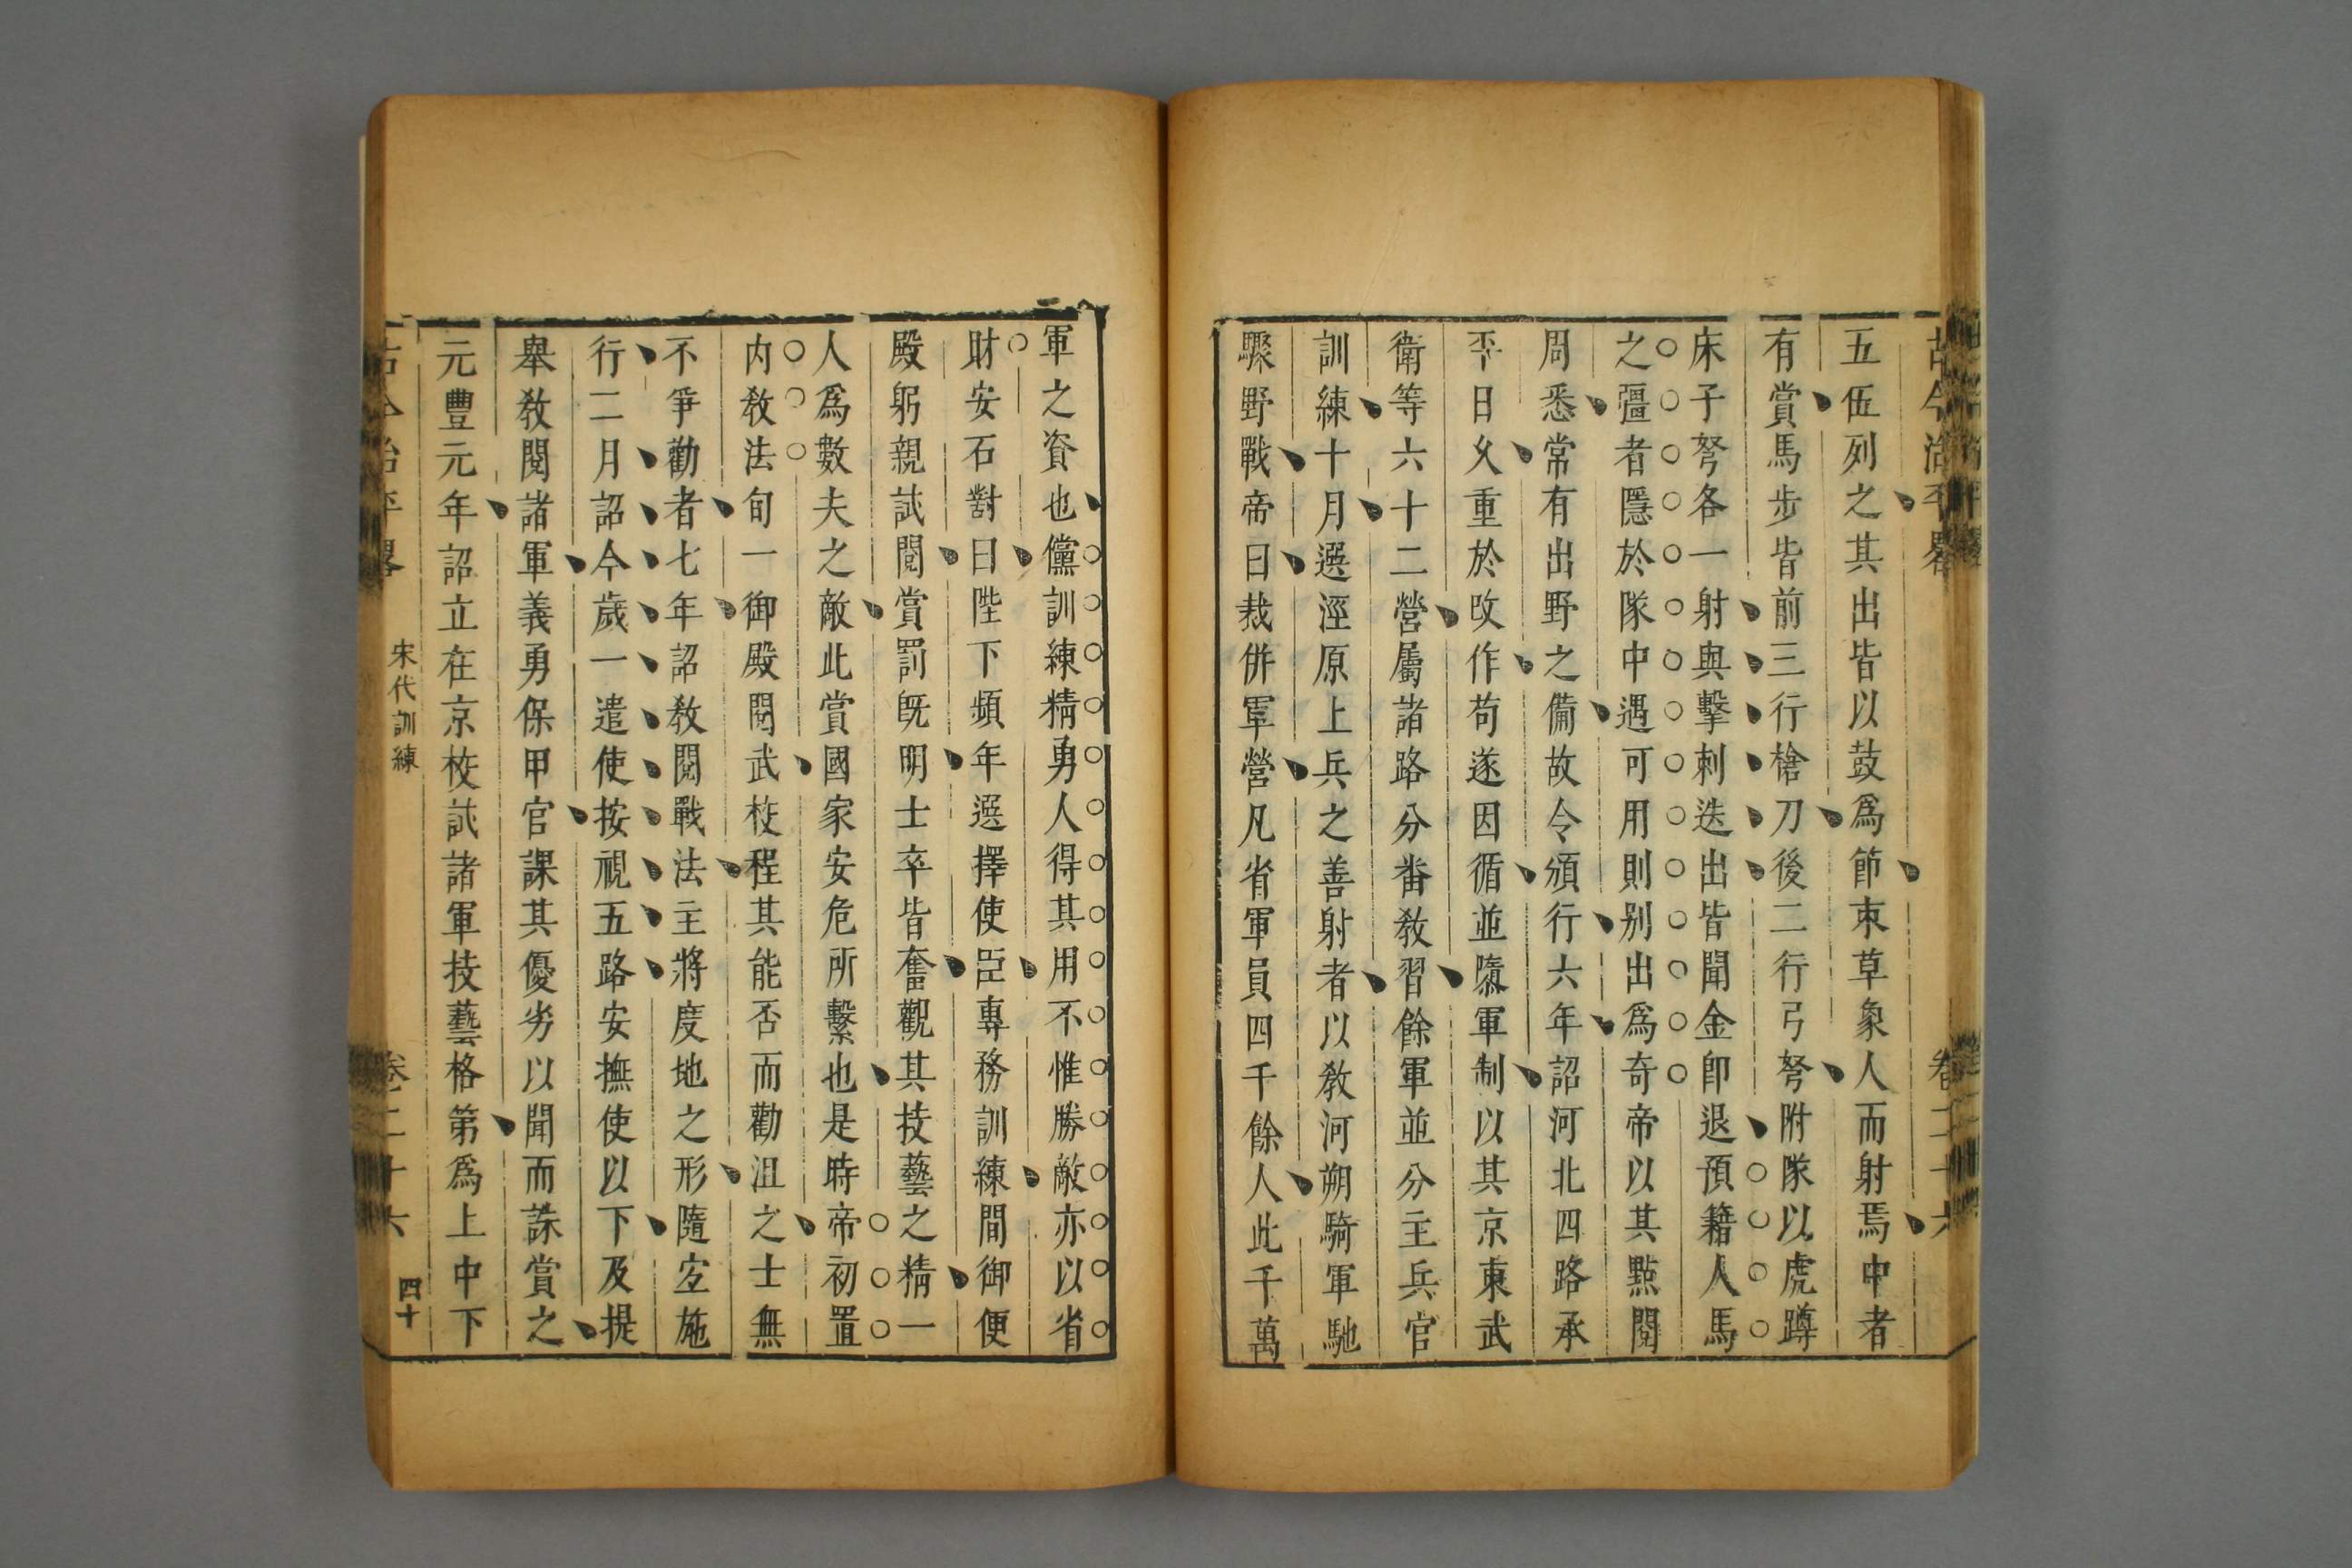 五伍列之其出皆以鼓爲節朿草象人而射焉中者
有賞馬步皆前三行槍刀後二行弓弩附隊以虎蹲
床子弩各一射與擊刺迭出皆聞金卽退預籍人馬
之彊者隱於隊中遇可用則别出爲奇帝以其㸃閱
周悉常有出野之備故令頒行六年詔河北四路承
平日乆重於改作苟遂因循並隳軍制以其京東武
衛等六十二營屬諸路分畨敎習餘軍並分主兵官
訓練十月選涇原上兵之善射者以敎河朔騎軍馳
驟野戰帝曰裁併軍營凡省軍員四千餘人此千萬
軍之資也儻訓練精勇人得其用不惟勝敵亦以省
財安石對曰陛下頻年選擇使臣專務訓練間御便
殿躬親試閱賞罰旣明士卒皆奮觀其技藝之精一
人爲數夫之敵此賞國家安危所繫也是時帝初置
内敎法旬一御殿閱武校程其能否而勸沮之士無
不爭勸者七年詔敎閱戰法主將度地之形隨宐施
行二月詔今歲一遣使按視五路安撫使以下及提
舉敎閱諸軍義勇保甲官課其優劣以聞而誅賞之
元豐元年詔立在京校試諸軍技藝格第爲上中下
宋代訓練
卷二十六
四十